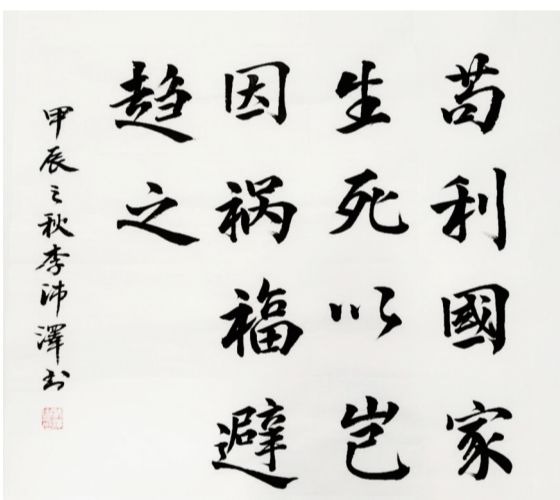 苟利國家
生死以岂
因祸福避
趋之
甲辰之秋李沛澤书